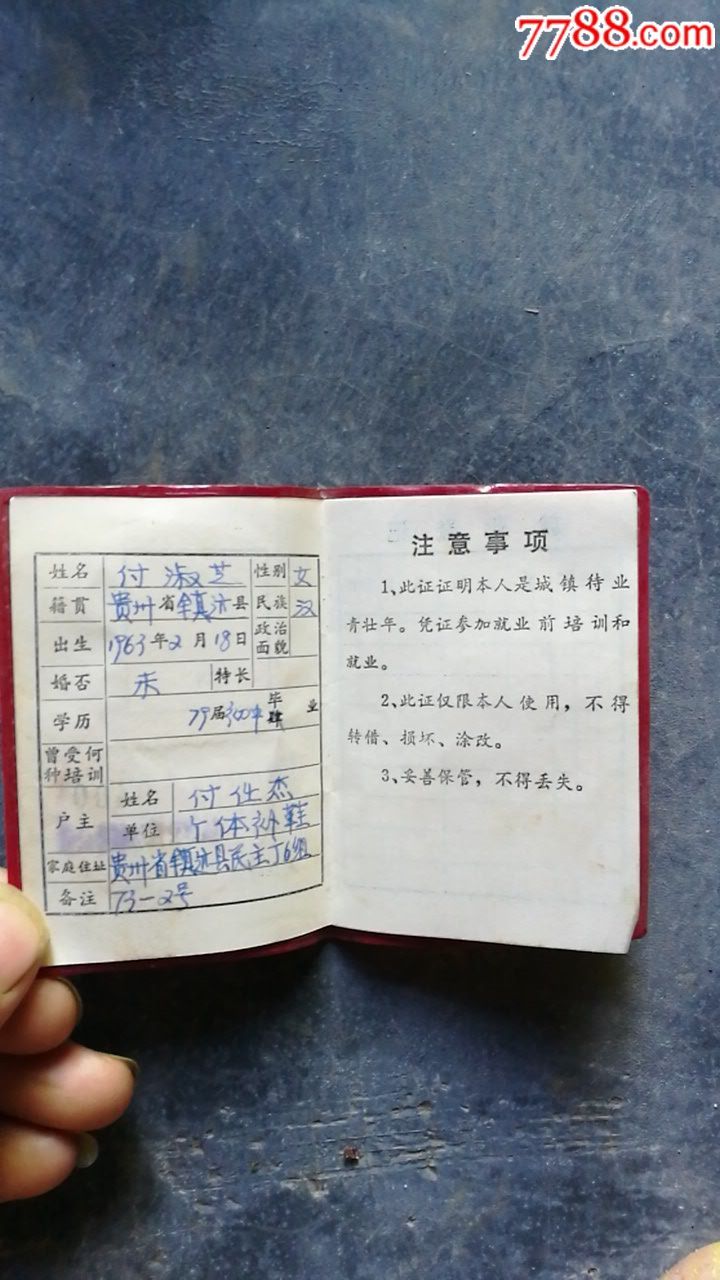 7788.com
姓名 付淑芝 性别 女
籍贯 贵州省镇沅县 民族 汉
出生 1963年2月18日 政治面貌
婚否 未 特长
学历 79届 毕肆业
曾受何种培训
户主 姓名 付仕杰
单位 个体补鞋
家庭住址 贵州省镇沅县民主丁6组
备注 73-2号
注意事项
1、此证证明本人是城镇待业
青壮年。凭证参加就业前培训和
就业。
2、此证仅限本人使用，不得
转借、损坏、涂改。
3、妥善保管，不得丢失。